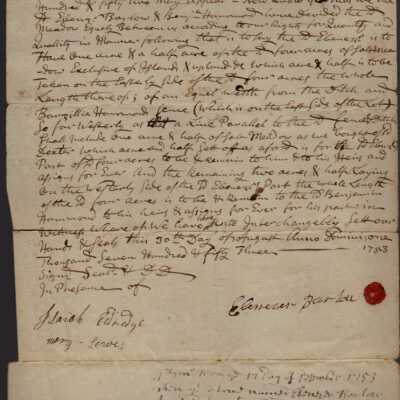 Hundred & fifty two may appear - Now know ye that we the
sd Ebenr Barlow & Benj Hammond have divided the sd
Meadow Equely Between us according to our Right for Quantity and
Quality in Manner following that is to say the sd Ebenezer is to
Have one acre & a half acre of the sd four acres of salt mea-
dow Exclusive of Islands & upland & which acre & half is to be
taken on the Easterly side of the sd four acres the whole
Length thereof of an Equal width from the Ditch and
Hammond fence (which is on the East side of the Lot)
So far Westerly as that a Line Parallel to the sd fence Ditch
Shall include one acre & half of salt Meadow as we bought of
Dexter which acre and half set of as aforsd is for the sd Ebenr
Part of sd four acres to be & Remain to him & to his Heirs and
assigns for Ever And the Remaining two acres & half Laying
on the Westerly Side of the sd Ebenezers Part the whole Length
of the sd four acres is to be & Remain to the sd Benjamin
Hammond to his heirs & assigns for Ever for his part in
Witness where of We have Here unto Interchangebly Set our
Hands & Seals this 30th Day of August Anno Domini one
Thousand Seven Hundred & fifty Three 1753
Sign'd Seal'd & DD
In Presence of
Ebenezer Barlow
Eldredge
mary
Day of 1753
named Ebenezer Barlow